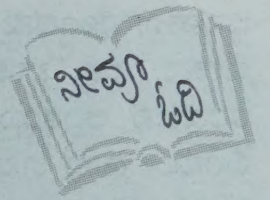 ನೀವೂ
ಓದಿ